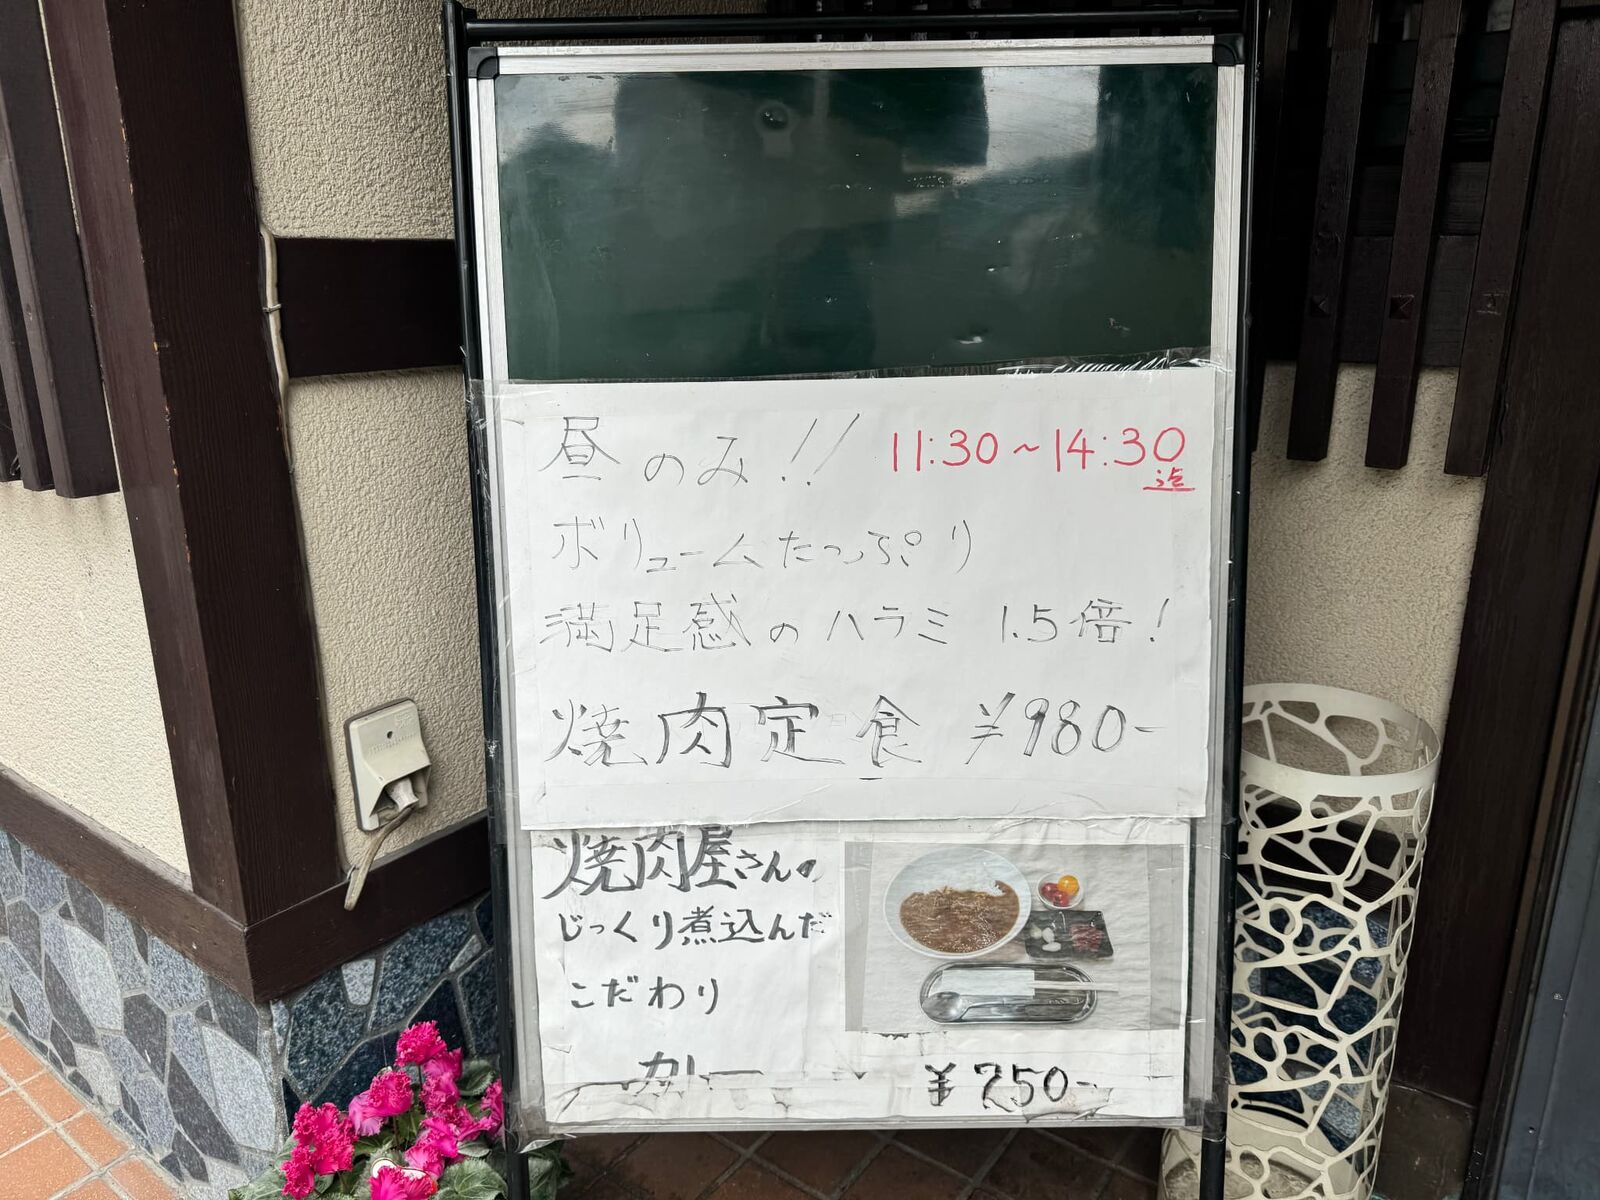 昼のみ!! 11:30～14:30迄
ボリュームたっぷり
満足感のハラミ 1.5倍!
焼肉定食 ¥980-
焼肉屋さんの
じっくり煮込んだ
こだわり
カレー ¥750-